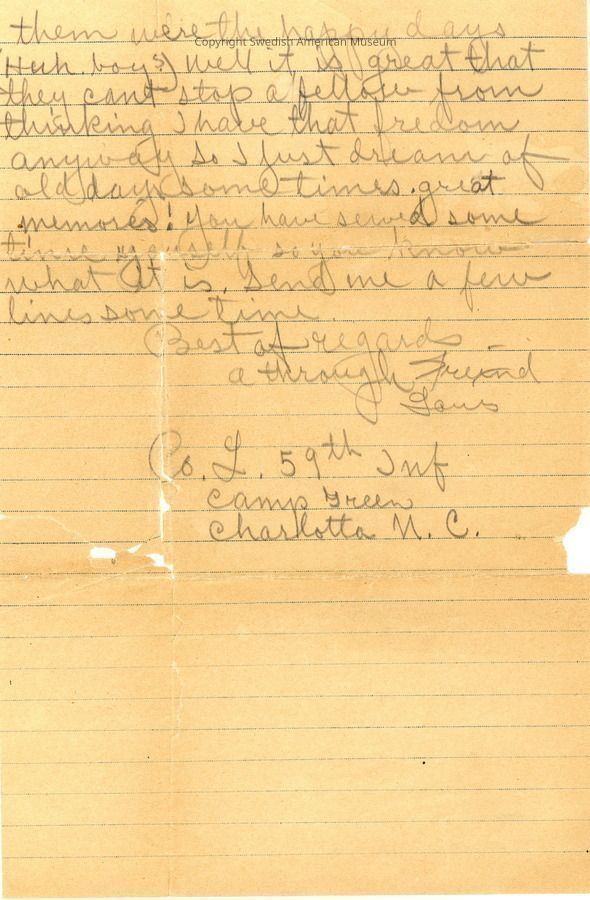 them were the happy days
Copyright Swedish American Museum
(Huh boys) well it is great that
they cant stop a fellow from
thinking I have that fredom
anyway so I just dream of
old days some times. great
memores! You have served some
time yourself so you know
what it is. Send me a few
lines some time.
Best of regards -
a through Freind
Co. L. 59th Inf
Camp Green
Charlotta N. C.